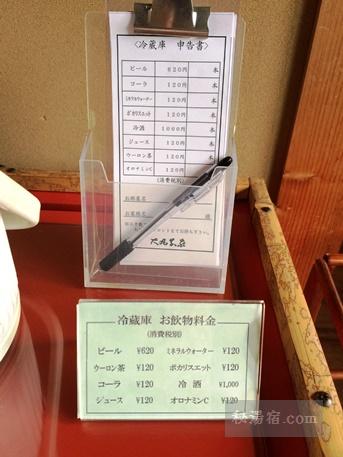 〈冷蔵庫 申告書〉
ビール 620円 本
コーラ 120円 本
ミネラルウォーター 120円 本
ポカリスエット 120円 本
冷酒 1000円 本
ジュース 120円 本
ウーロン茶 120円 本
オロナミンC 120円 本
(消費税別)
お部屋名
お客様名 様
大丸あすなろ荘
冷蔵庫 お飲物料金
(消費税別)
ビール ¥620 ミネラルウォーター ¥120
ウーロン茶 ¥120 ポカリスエット ¥120
コーラ ¥120 冷酒 ¥1,000
ジュース ¥120 オロナミンC ¥120
秘湯宿.com